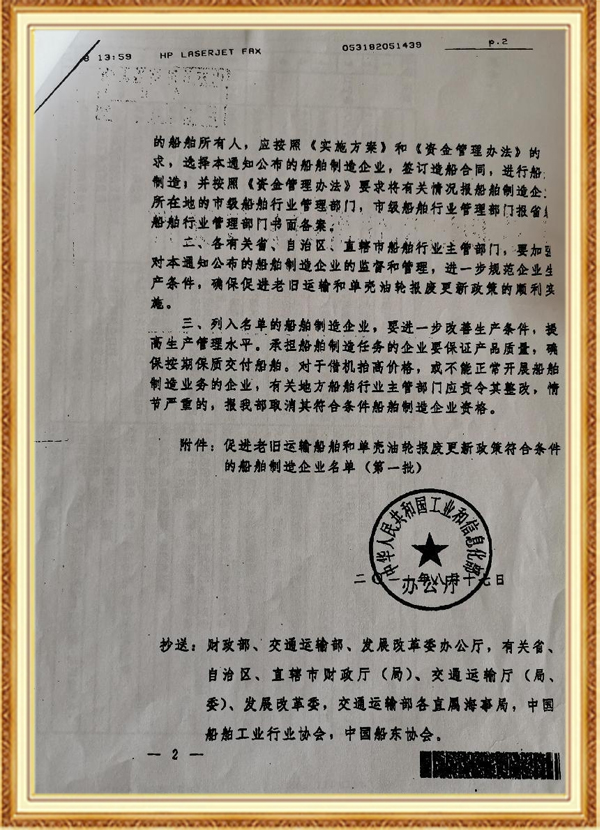 13:59 HP LASERJET FAX 053182051439 p.2
的船舶所有人，应按照《实施方案》和《资金管理办法》的
求，选择本通知公布的船舶制造企业，签订造船合同，进行船
制造；并按照《资金管理办法》要求将有关情况报船舶制造企
所在地的市级船舶行业管理部门，市级船舶行业管理部门报省
船舶行业管理部门书面备案。
二、各有关省、自治区、直辖市船舶行业主管部门，要加
对本通知公布的船舶制造企业的监督和管理，进一步规范企业生
产条件，确保促进老旧运输和单壳油轮报废更新政策的顺利实
施。
三、列入名单的船舶制造企业，要进一步改善生产条件，提
高生产管理水平。承担船舶制造任务的企业要保证产品质量，确
保按期保质交付船舶。对于借机抬高价格，或不能正常开展船舶
制造业务的企业，有关地方船舶行业主管部门应责令其整改，情
节严重的，报我部取消其符合条件船舶制造企业资格。
附件：促进老旧运输船舶和单壳油轮报废更新政策符合条件
的船舶制造企业名单（第一批）
中华人民共和国工业和信息化部
办公厅
二〇一 年八月十七日
抄送：财政部、交通运输部、发展改革委办公厅，有关省、
自治区、直辖市财政厅（局）、交通运输厅（局、
委）、发展改革委，交通运输部各直属海事局，中国
船舶工业行业协会，中国船东协会。
— 2 —